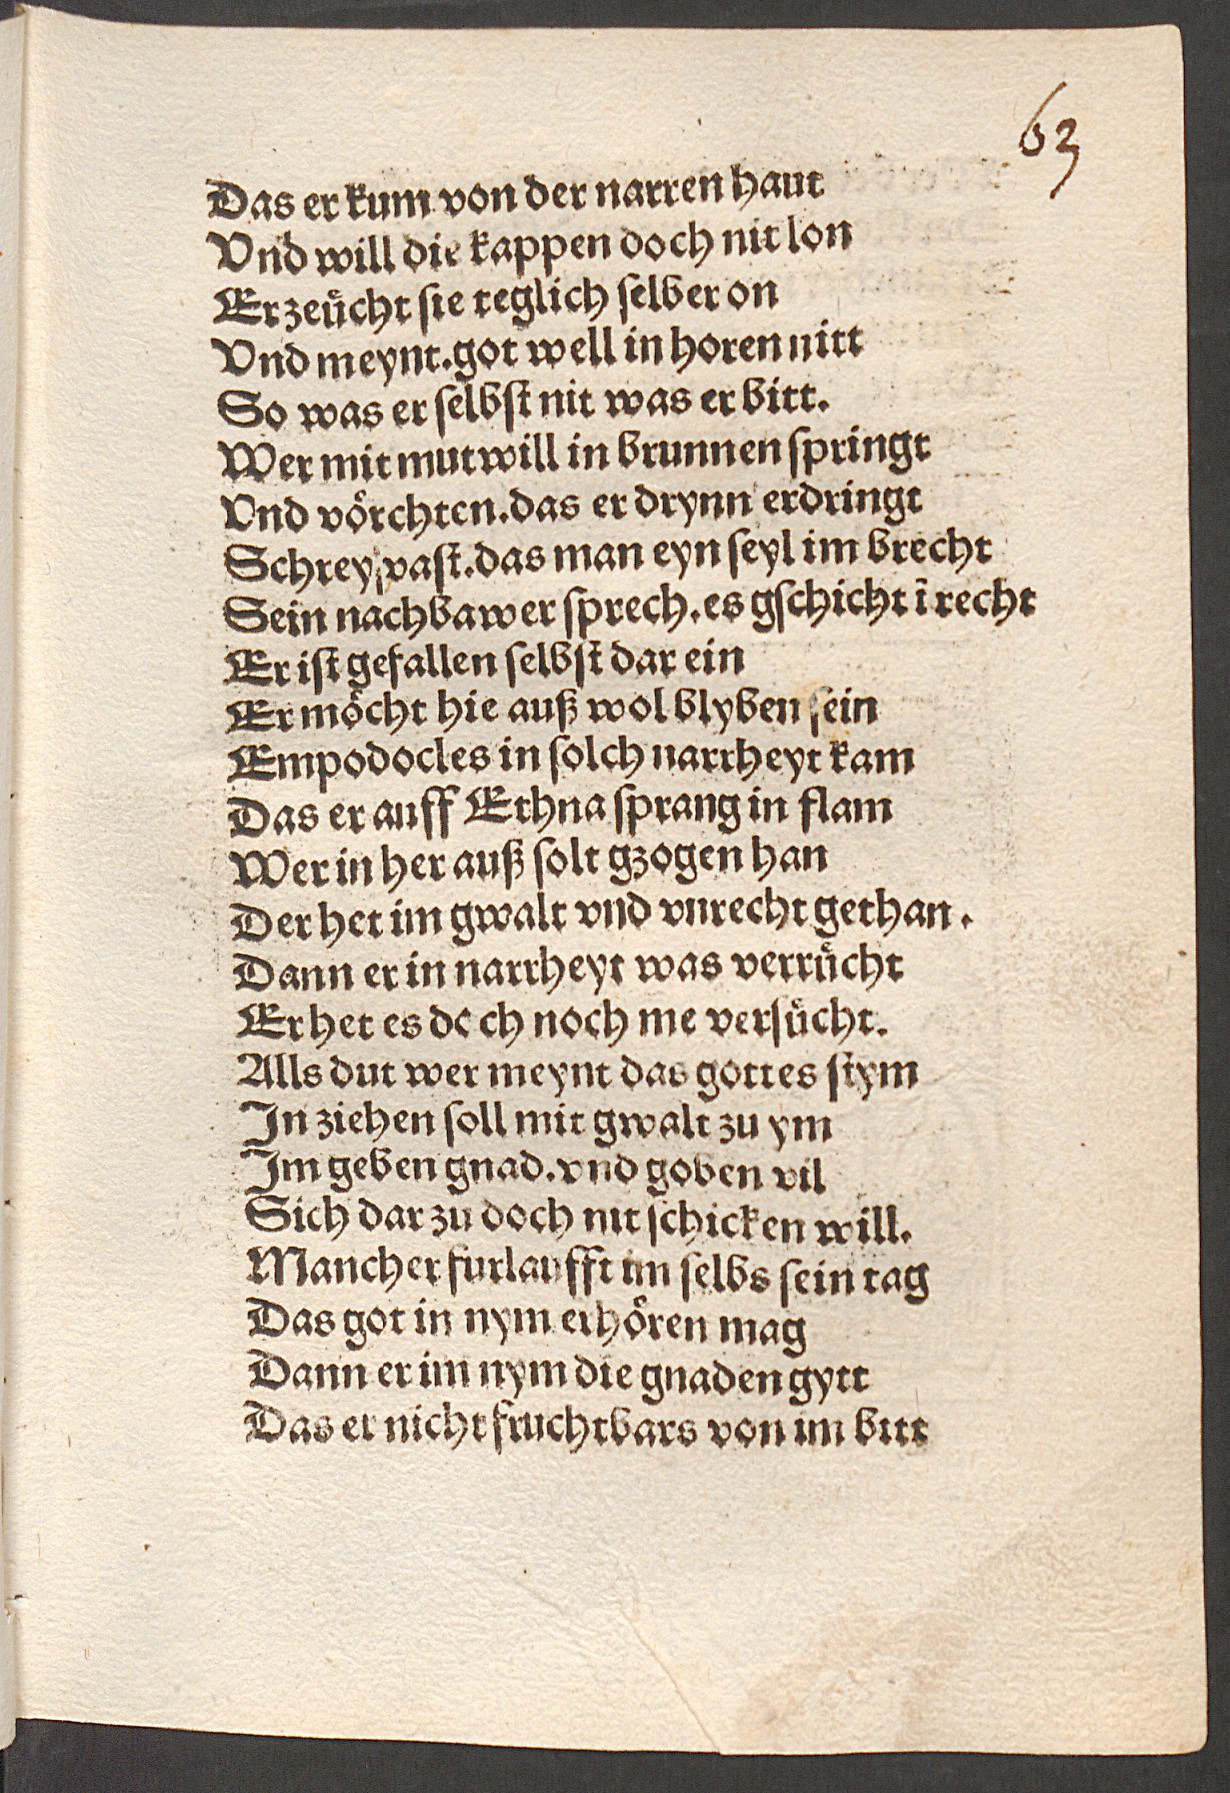 63
Das er kum von der narren haut
Vnd will die kappen doch nit lon
Er zeücht sie teglich selber on
Vnd meynt.got well in horen nitt
So was er selbst nit was er bitt.
Wer mit mutwill in brunnen springt
Vnd vörchten.das er drynn erdringt
Schrey vast.das man eyn seyl im brecht
Sein nachbawer sprech.es gschicht ī recht
Er ist gefallen selbst dar ein
Er möcht hie auß wol blyben sein
Empodocles in solch narrheyt kam
Das er auff Ethna sprang in flam
Wer in her auß solt gzogen han
Der het im gwalt vnd vnrecht gethan.
Dann er in narrheyt was verrücht
Er het es doch noch me versücht.
Alls dut wer meynt das gottes stym
In ziehen soll mit gwalt zu ym
Im geben gnad.vnd goben vil
Sich dar zu doch nit schicken will.
Mancher furlaufft im selbs sein tag
Das got in nym erhören mag
Dann er im nym die gnaden gytt
Das er nicht fruchtbars von im bitt